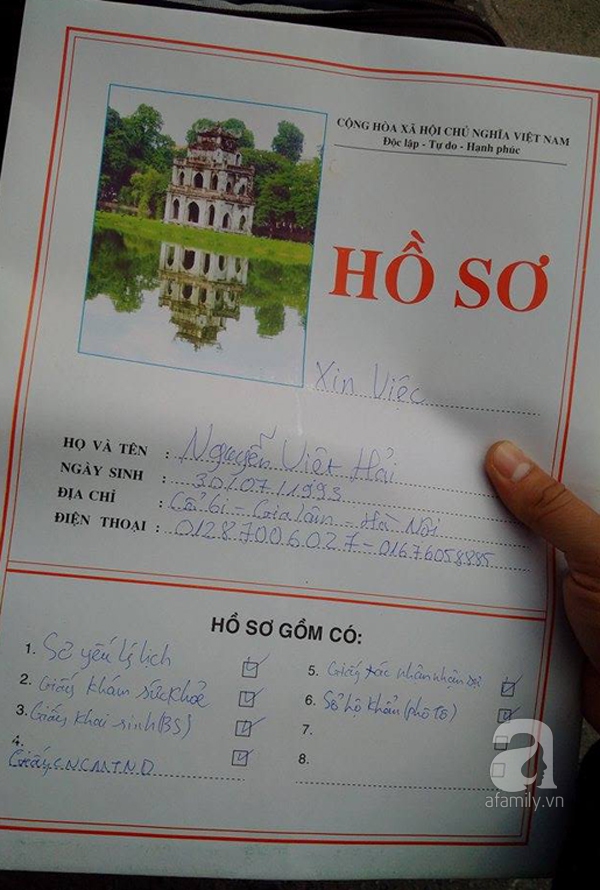 CỘNG HÒA XÃ HỘI CHỦ NGHĨA VIỆT NAM
Độc lập - Tự do - Hạnh phúc
HỒ SƠ
Xin Việc
HỌ VÀ TÊN : Nguyễn Viết Hải
NGÀY SINH : 30/07/1993
ĐỊA CHỈ : Cổ Bi - Gia Lâm - Hà Nội
ĐIỆN THOẠI : 01287006027 - 01676058885
HỒ SƠ GỒM CÓ:
1. Sơ yếu lý lịch
2. Giấy khám sức khỏe
3. Giấy khai sinh (BS)
4. Giấy CNCMTND
5. Giấy xác nhận nhân sự
6. Sổ hộ khẩu (phô tô)
7.
8.
a
afamily.vn